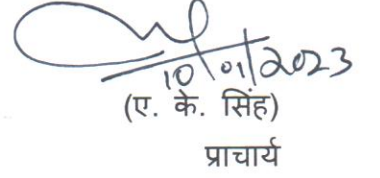 10/01/2023
(ए. के. सिंह)
प्राचार्य